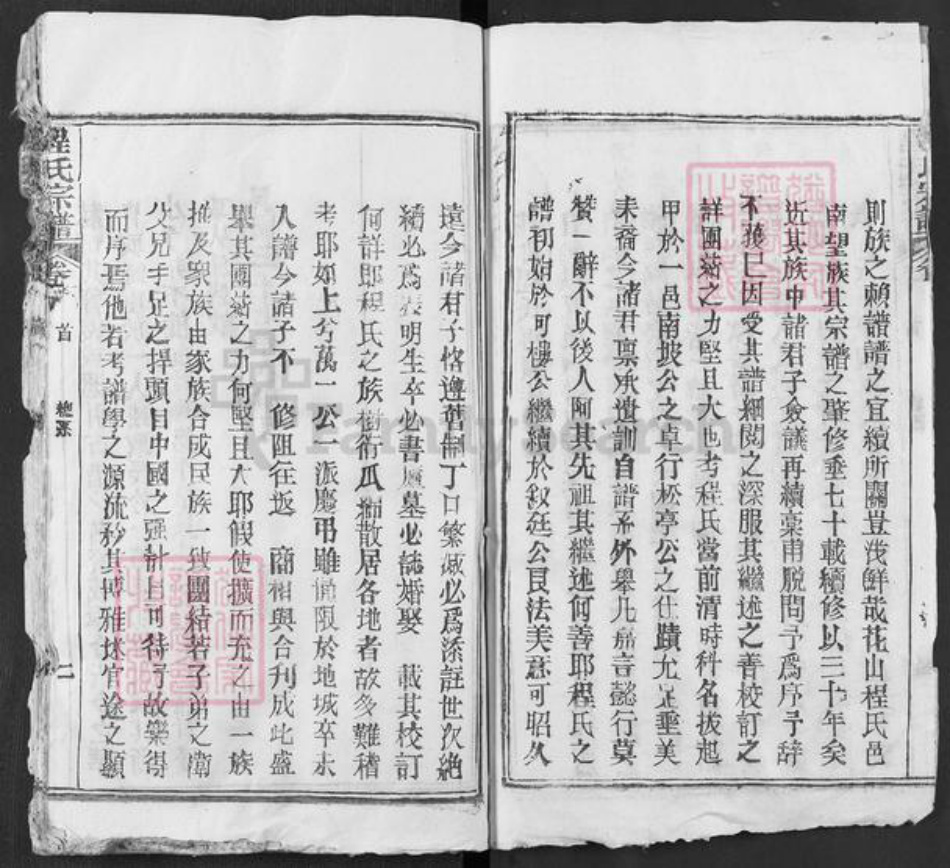 則族之賴譜譜之宜續所關豈淺鮮哉花山程氏邑
南望族其宗譜之肇修垂七十載續修以三十年矣
近其族中諸君子僉議再續稾甫脫問予爲序予辭
不獲已因受其譜細閱之深服其繼述之善校訂之
詳團結之力堅且大也考程氏當前清時科名拔起
甲於一邑南坡公之卓行松亭公之仕蹟尤足垂美
來裔今諸君禀承遺訓自譜系外舉凡嘉言懿行莫
贊一辭不以後人阿其先祖其繼述何善耶程氏之
譜初始於可樓公繼續於叙廷公良法美意可昭久
遠今諸君子恪遵舊制丁口繁衍必爲添註世次絕
續必爲表明生卒必書廬墓必誌婚娶 載其校訂
何詳耶程氏之族樹衍瓜綿散居各地者故多難稽
考耶如上兮萬一公一派慶弔雖 限於地城卒未
入譜今諸子不 修阻往返 商相與合刋成此盛
舉其團結之力何堅且大耶假使擴而充之由一族
推及衆族由家族合成民族一致團結若子弟之衛
父兄手足之捍頭目中國之强 可待 故樂得
而序焉他若考譜學之源流矜其博雅述官途之顯
程氏宗譜
卷
首
總祭
二
FamilySearch